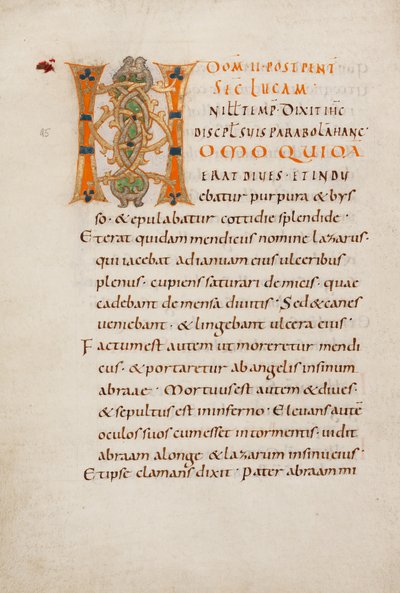 DOM̄ · II · POST PENT̄
SEC̄ LUCAM
IN ILL̄ TEMP̄ · DIXIT IH̄C
DISCPL̄I SUIS PARABOLĀ HANC ·
HOMO QUIDĀ
ERAT DIVES · ET INDU
ebatur purpura & bys
so · & epulabatur cottidie splendide ·
Et erat quidam mendicus nomine lazarus ·
qui iacebat ad ianuam eius ulceribus
plenus · cupiens saturari de micis · quae
cadebant de mensa divitis · Sed & canes
veniebant · & lingebant ulcera eius ·
Factum est autem ut moreretur mendi
cus · & portaretur ab angelis in sinum
abraae · Mortuus est autem & dives ·
& sepultus est in inferno · Elevans autē
oculos suos cum esset in tormentis · vidit
abraam a longe & lazarum in sinu eius ·
Et ipse clamans dixit · Pater abraam mi